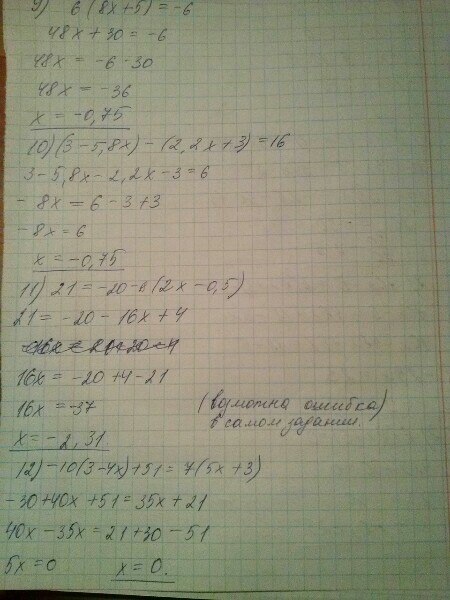 9) 6(8x+5)=-6
48x+30=-6
48x=-6-30
48x=-36
x=-0,75
10)(3-5,8x)-(2,2x+3)=16
3-5,8x-2,2x-3=6
-8x=6-3+3
-8x=6
x=-0,75
11) 21=-20-8(2x-0,5)
21=-20-16x+4
16x=-20+4-21
16x=-37
(возможна ошибка)
в самом задании.
x=-2,31
12)-10(3-4x)+51=7(5x+3)
-30+40x+51=35x+21
40x-35x=21+30-51
5x=0 x=0.